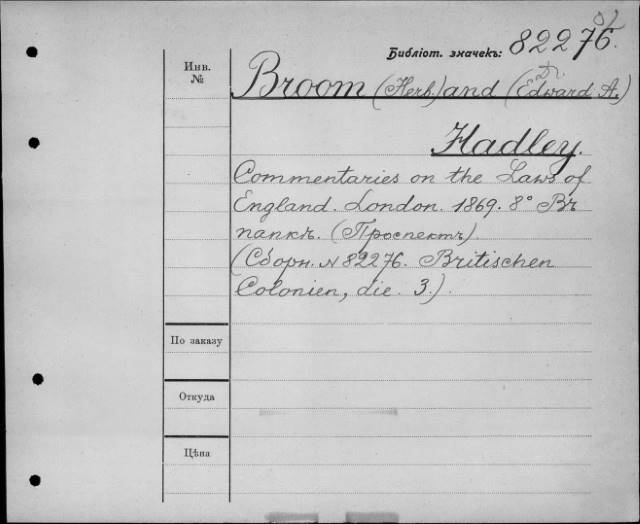 Библіот. значекъ: 82276.
Инв.
№
Broom (Herb.) and (Edward A.)
Hadley.
Commentaries on the Laws of
England. London. 1869. 8° Въ
папкѣ. (Проспектъ)
(Сборн. № 82276. Britischen
Colonien, die. 3.).
По заказу
Откуда
Цѣна